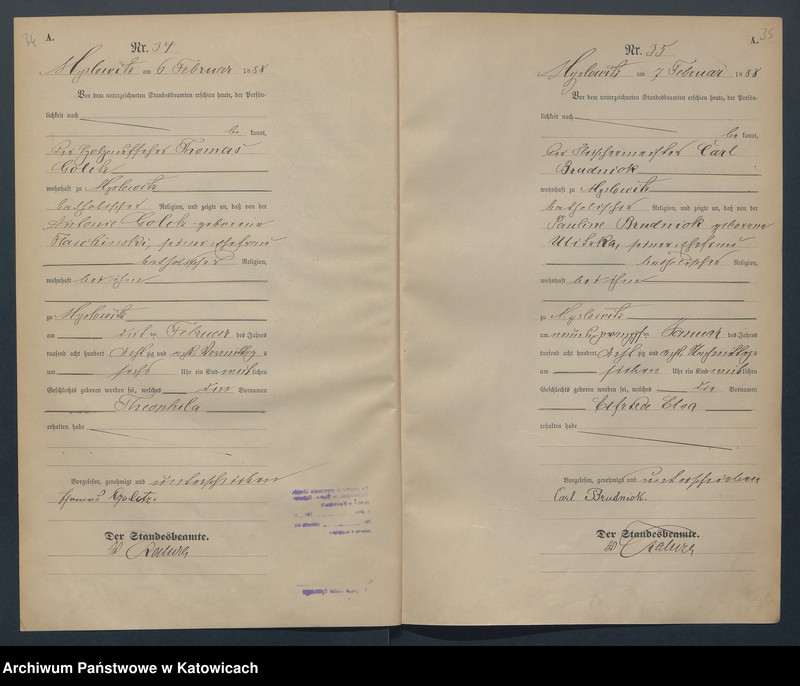 34
A.
Nr. 34
Myslowitz am 6 Februar 1888
Vor dem unterzeichneten Standesbeamten erschien heute, der Persön-
lichkeit nach
be kannt,
Thomas
Golek
wohnhaft zu Myslowitz
katholischer Religion, und zeigte an, daß von der
Antonie Golek geborene
seiner Ehefrau
katholischer Religion,
wohnhaft bei ihm
zu Myslowitz
am Februar des Jahres
tausend acht hundert achtzig und acht Vormittags
um sechs Uhr ein Kind weiblichen
Geschlechts geboren worden sei, welches den Vornamen
Theophila
erhalten habe
Vorgelesen, genehmigt und unterschrieben
Der Standesbeamte.
35
A.
Nr. 35
Myslowitz am 7 Februar 1888
Vor dem unterzeichneten Standesbeamten erschien heute, der Persön-
lichkeit nach
be kannt,
der Fleischermeister Carl
Brudniok
wohnhaft zu Myslowitz
katholischer Religion, und zeigte an, daß von der
Pauline Brudniok geborene
seiner Ehefrau
katholischer Religion,
wohnhaft bei ihm
zu Myslowitz
am Januar des Jahres
tausend acht hundert achtzig und acht Nachmittags
um sieben Uhr ein Kind weiblichen
Geschlechts geboren worden sei, welches die Vornamen
Elfriede Elsa
erhalten habe
Vorgelesen, genehmigt und unterschrieben
Carl Brudniok.
Der Standesbeamte.
Archiwum Państwowe w Katowicach